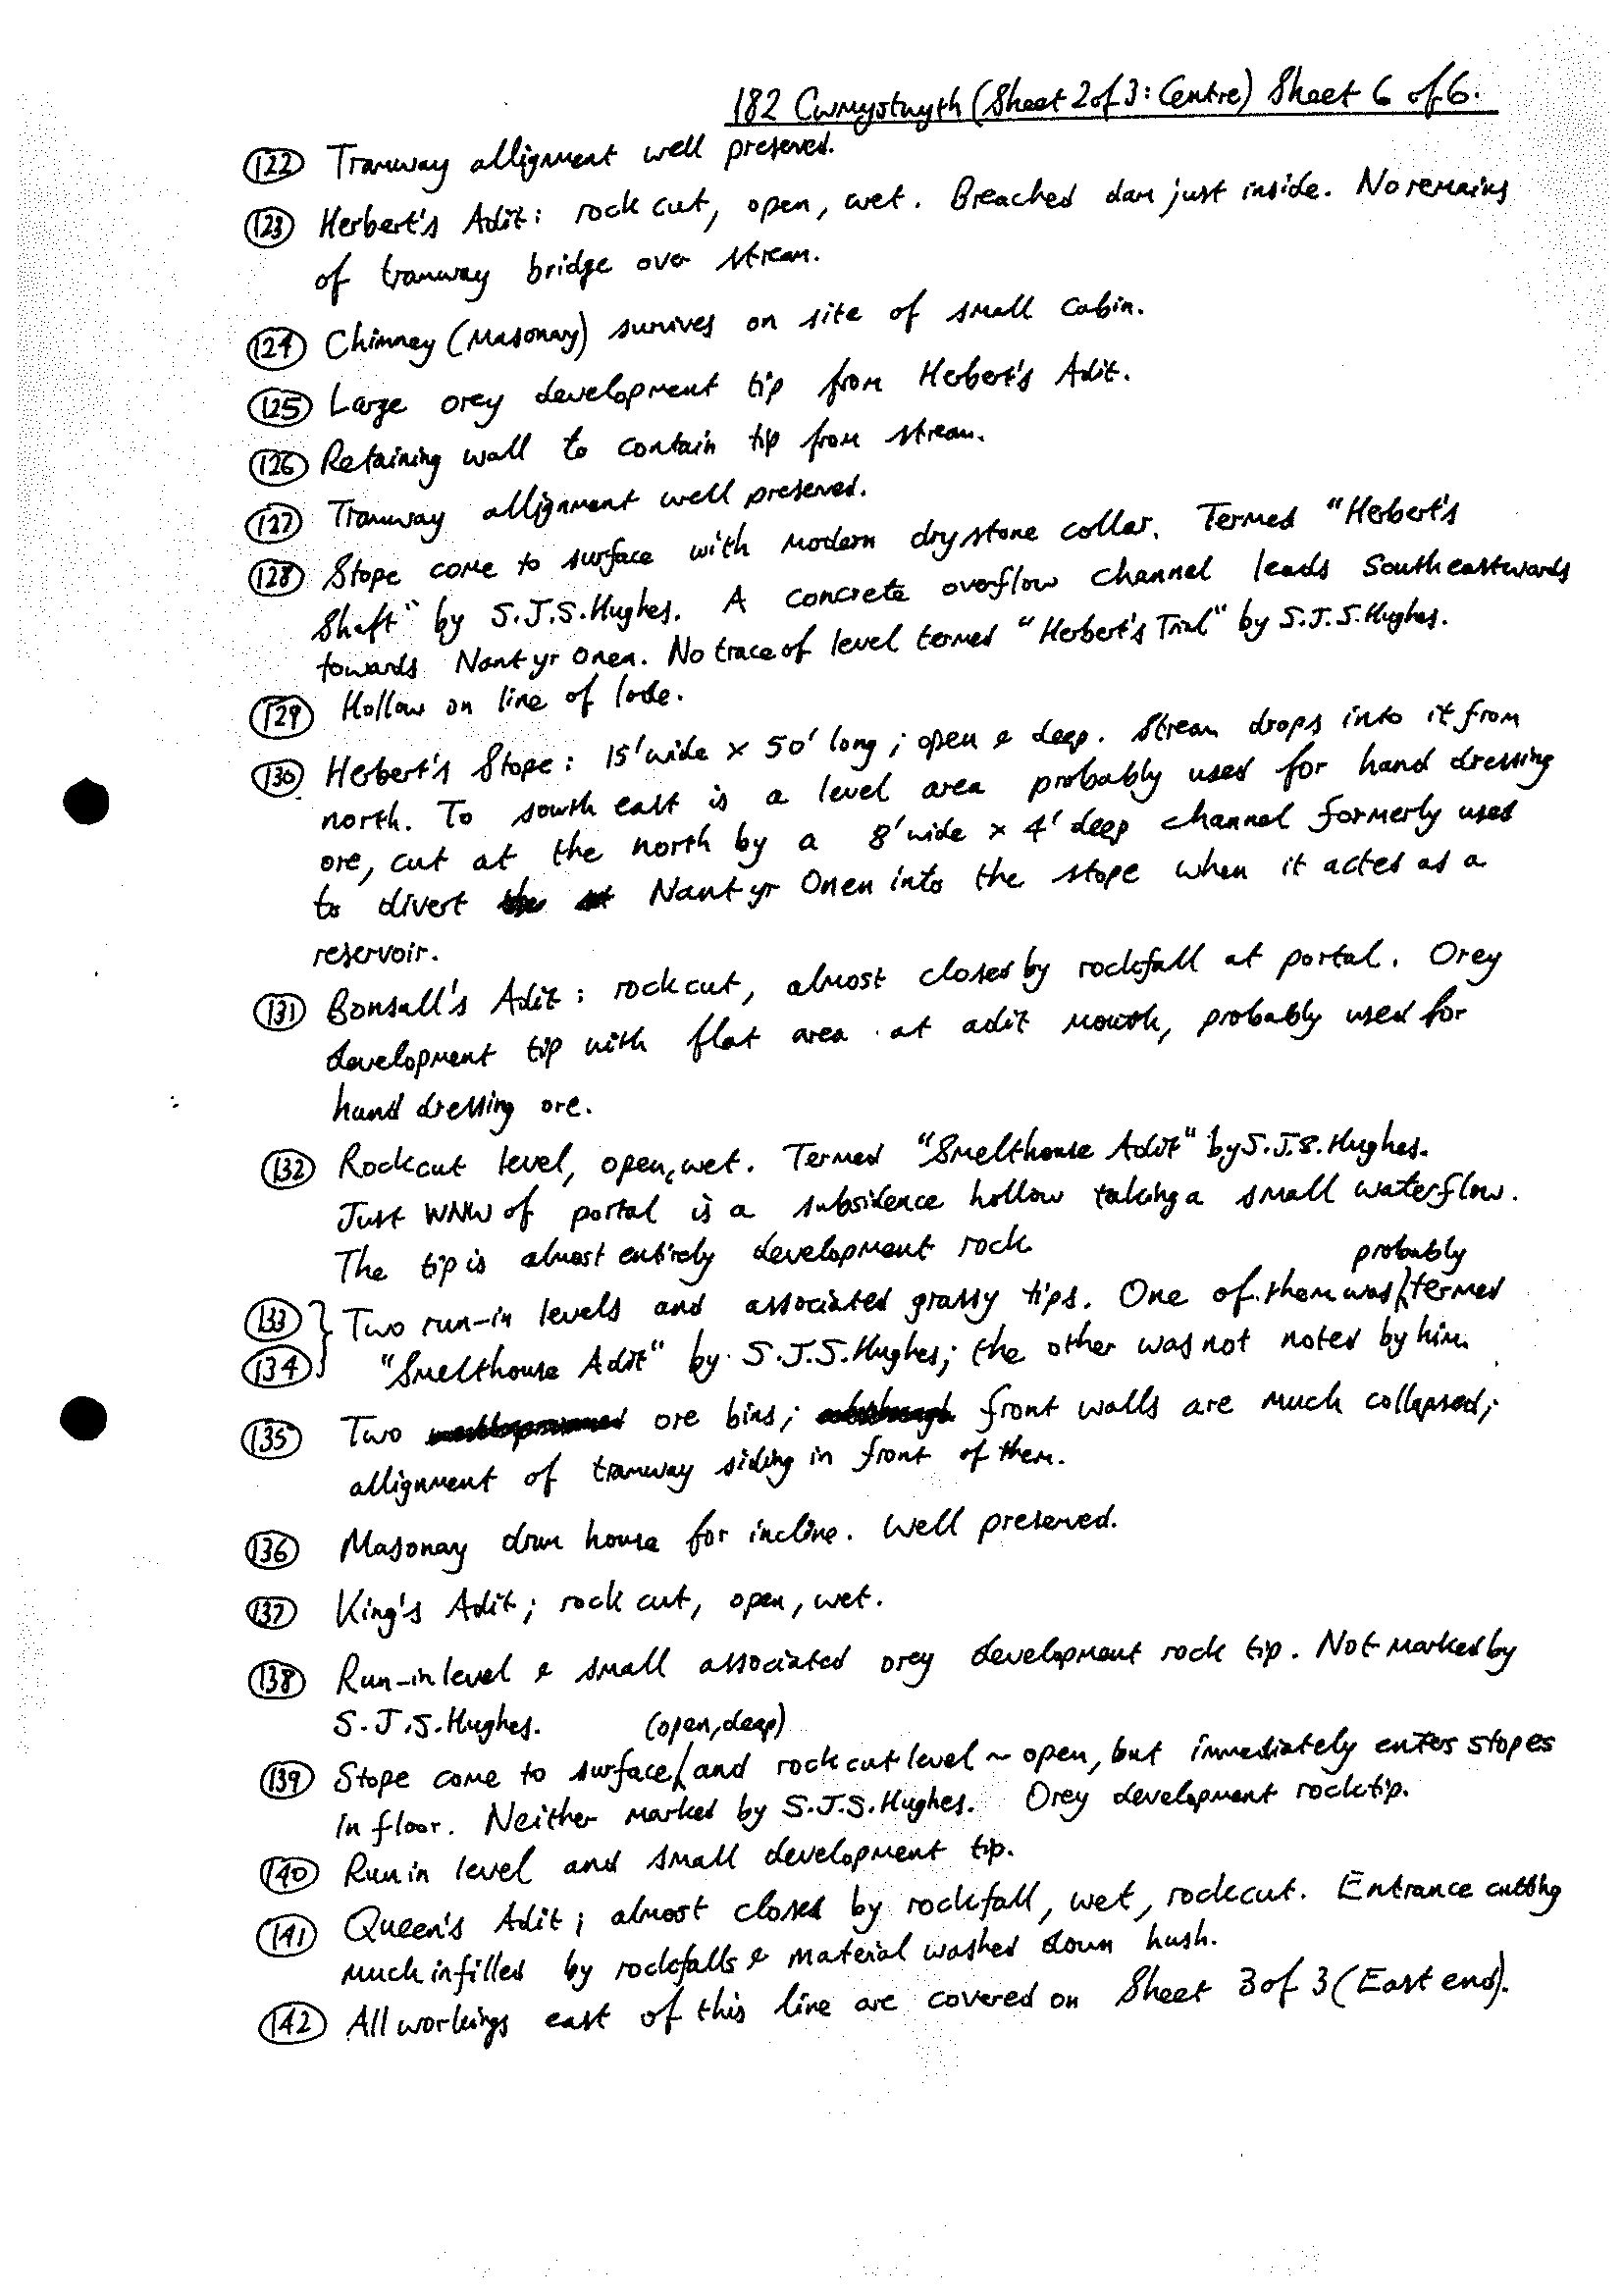 182 Cwmystwyth (Sheet 2 of 3: Centre) Sheet 6 of 6.
122 Tramway allignment well preserved.
123 Herbert's Adit: rock cut, open, wet. Breached dam just inside. No remains
of tramway bridge over stream.
124 Chimney (Masonay) survives on site of small cabin.
125 Large orey development tip from Herbert's Adit.
126 Retaining wall to contain tip from stream.
127 Tramway allignment well preserved.
128 Stope come to surface with modern drystone collar. Termed "Herbert's
Shaft" by S.J.S. Hughes. A concrete overflow channel leads Southeastwards
towards Nant yr Onen. No trace of level termed "Herbert's Trial" by S.J.S. Hughes.
129 Hollow on line of lode.
130 Herbert's Stope: 15' wide x 50' long; open & deep. Stream drops into it from
north. To south east is a level area probably used for hand dressing
ore, cut at the north by a 8' wide x 4' deep channel formerly used
to divert Nant yr Onen into the stope when it acted as a
reservoir.
131 Bonsall's Adit: rock cut, almost closed by rockfall at portal. Orey
development tip with flat area at adit mouth, probably used for
hand dressing ore.
132 Rockcut level, open, wet. Termed "Smelthouse Adit" by S.J.S. Hughes.
Just WNW of portal is a subsidence hollow taking a small waterflow.
The tip is almost entirely development rock
probably
133 Two run-in levels and associated grassy tips. One of them was termed
134 "Smelthouse Adit" by S.J.S. Hughes; the other was not noted by him.
135 Two ore bins; front walls are much collapsed;
allignment of tramway siding in front of them.
136 Masonay drum house for incline. Well preserved.
137 King's Adit; rock cut, open, wet.
138 Run-in level & small associated orey development rock tip. Not marked by
S.J.S. Hughes. (open, deep)
139 Stope come to surface and rock cut level ~ open, but immediately enters stopes
in floor. Neither marked by S.J.S. Hughes. Orey development rock tip.
140 Run in level and small development tip.
141 Queen's Adit; almost closed by rockfall, wet, rockcut. Entrance cutting
much infilled by rockfalls & material washed down hush.
142 All workings east of this line are covered on Sheet 3 of 3 (East end).